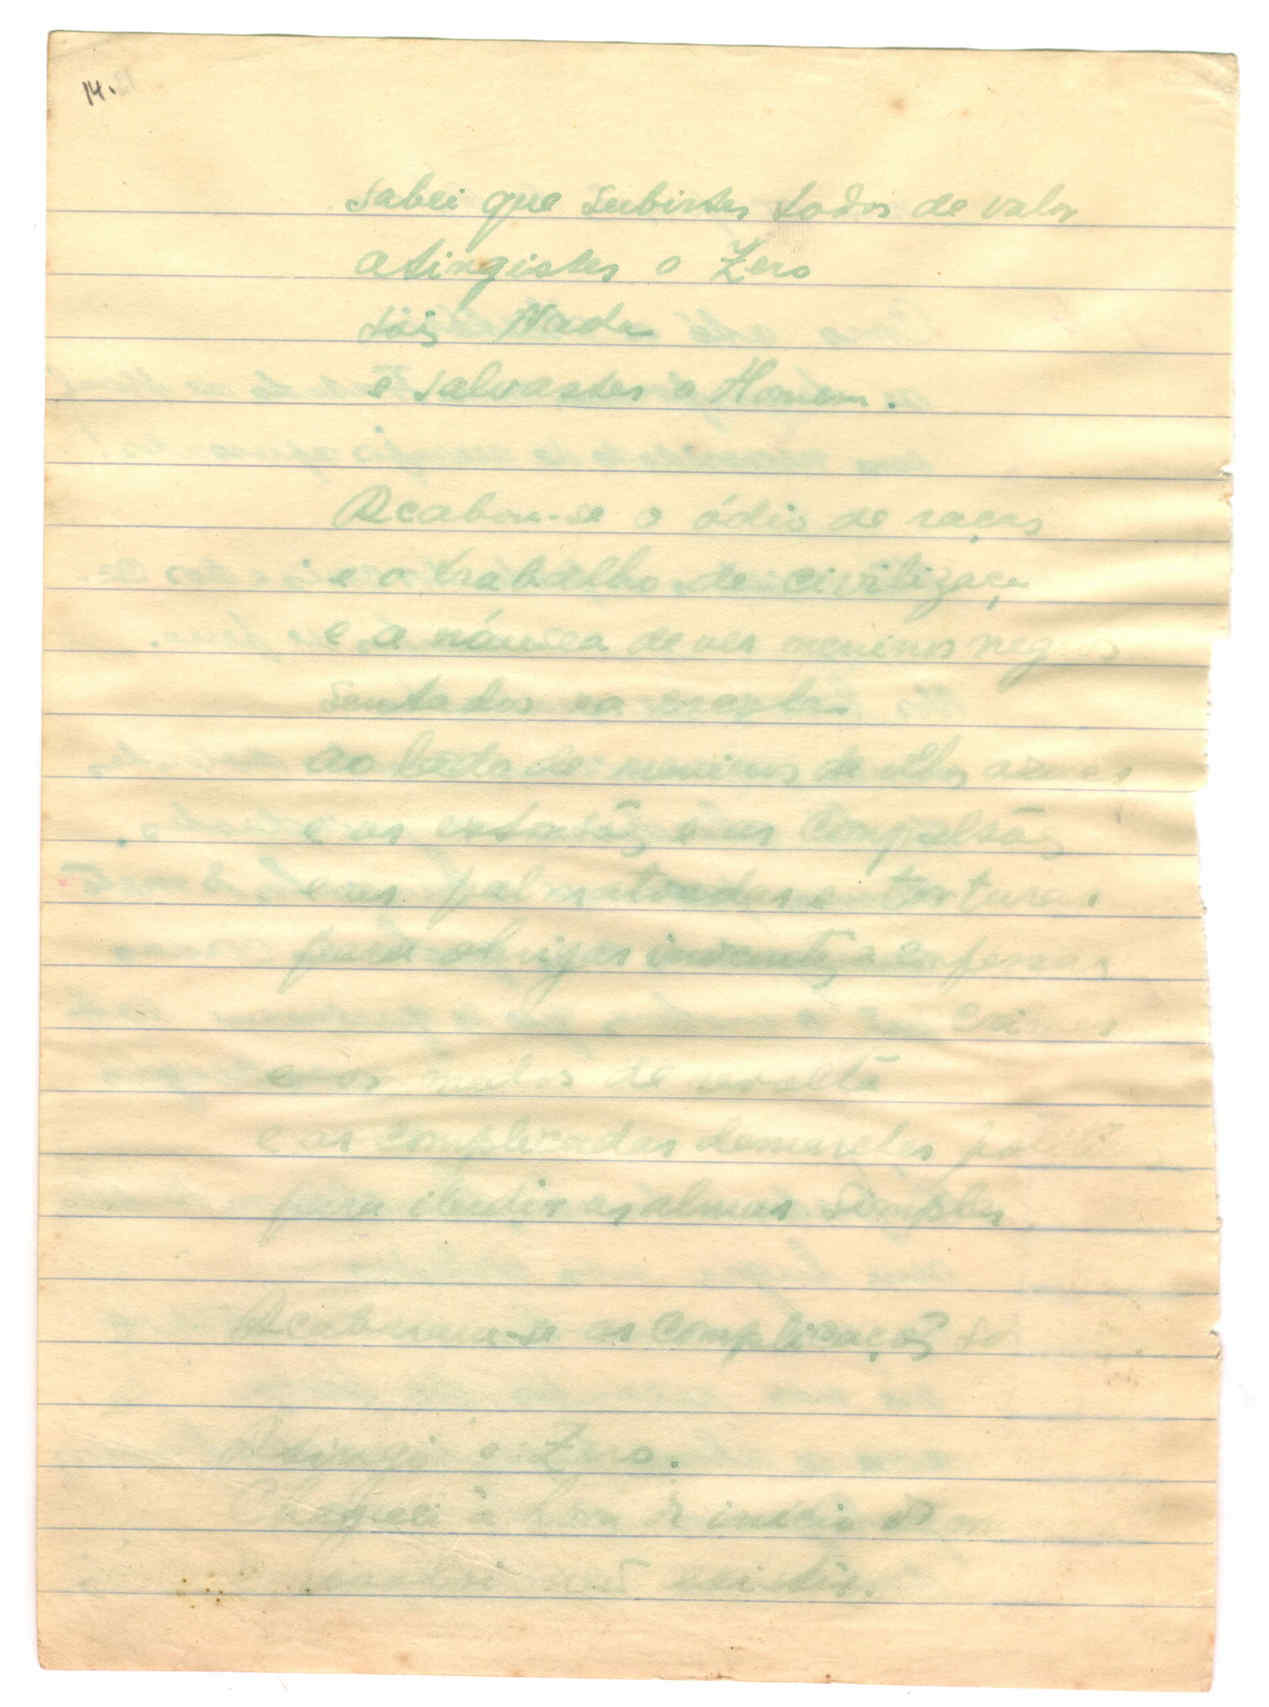 14.
sabei que subistes todos de valor
atingistes o Zero
sois Nada
e salvastes o Homem.
Acabou-se o ódio de raças
e o trabalho de civilizar
e a náusea de ver meninos negros
sentados na escola
ao lado de meninos de olhos azuis
e as extorsões e as compulsões
e as palmatoadas e torturas
para obrigar inocentes a confessar
e os medos de revolta
e as complicadas demarches
para iludir as almas simples,
Acabaram-se as complicações
Atingi o Zero.
Cheguei à hora do início do
não existir.